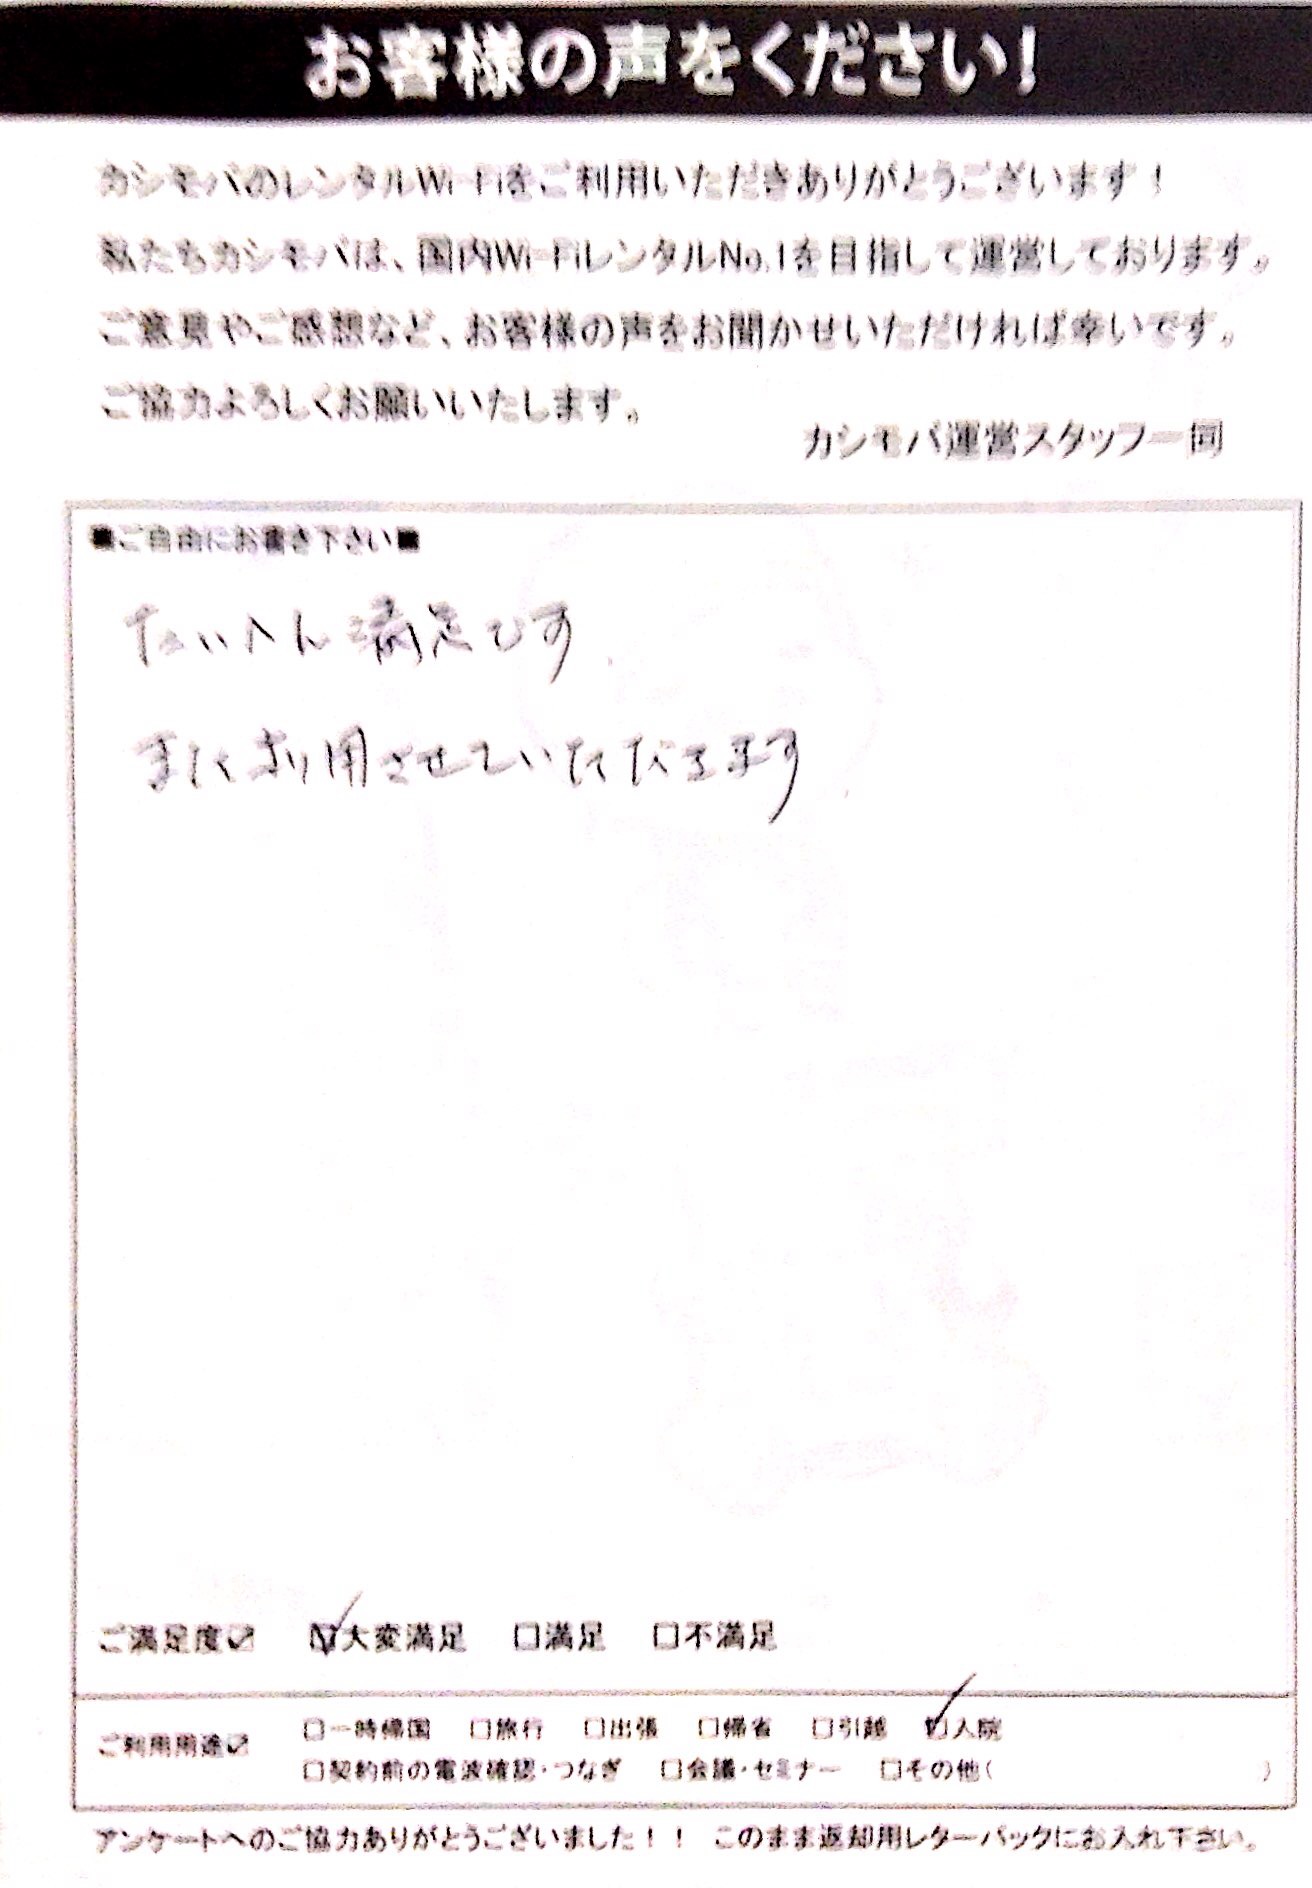 お客様の声をください!
カシモバのレンタルWi-Fiをご利用いただきありがとうございます！
私たちカシモバは、国内Wi-FiレンタルNo.1を目指して運営しております。
ご意見やご感想など、お客様の声をお聞かせいただければ幸いです。
ご協力よろしくお願いいたします。
カシモバ運営スタッフ一同
■ご自由にお書き下さい■
たいへん満足です
また利用させていただきます
ご満足度☑ ☑大変満足 □満足 □不満足
ご利用用途☑ □一時帰国 □旅行 □出張 □帰省 □引越 ☑入院
□契約前の電波確認・つなぎ □会議・セミナー □その他( )
アンケートへのご協力ありがとうございました！！ このまま返却用レターパックにお入れ下さい。